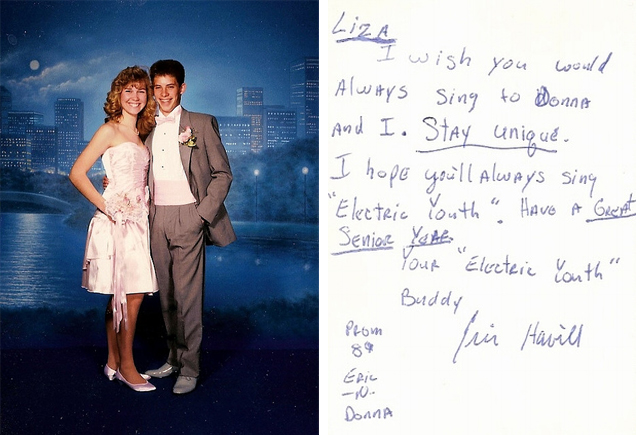 Liza
I wish you would
Always sing to Donna
And I. Stay unique.
I hope you'll Always sing
"Electric Youth". Have a Great
Senior Year
Your "Electric Youth"
Buddy
Havill
Prom
89
Eric
-N-
Donna